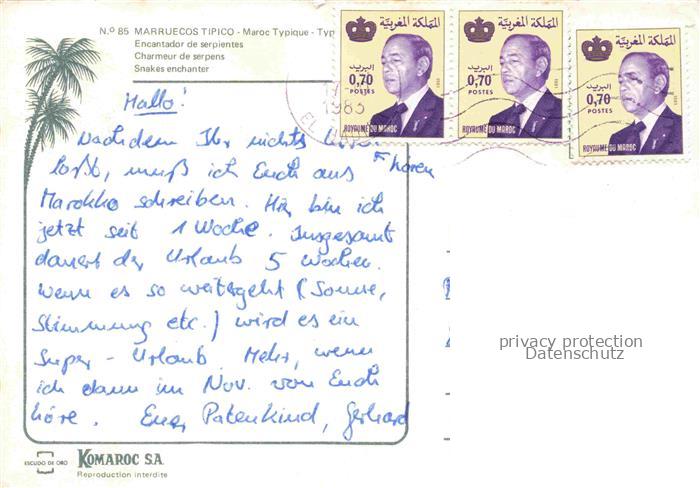 N.º 85 MARRUECOS TIPICO - Maroc Typique - Typ
Encantador de serpientes
Charmeur de serpens
Snakes enchanter
المملكة المغربية
البريد
0,70
POSTES
ROYAUME DU MAROC
المملكة المغربية
البريد
0,70
POSTES
ROYAUME DU MAROC
المملكة المغربية
البريد
0,70
POSTES
ROYAUME DU MAROC
1983
EL
Hallo!
Nachdem Ihr nichts hören
laßt, muß ich Euch aus
Marokko schreiben. Hier bin ich
jetzt seit 1 Woche. Insgesamt
dauert der Urlaub 5 Wochen.
wenn es so weitergeht (Sonne,
Stimmung etc.) wird es ein
Super-Urlaub. Mehr, wenn
ich dann im Nov. von Euch
höre. Euer Patenkind, Gerhard
privacy protection
Datenschutz
ESCUDO DE ORO
KOMAROC S.A.
Reproduction interdite